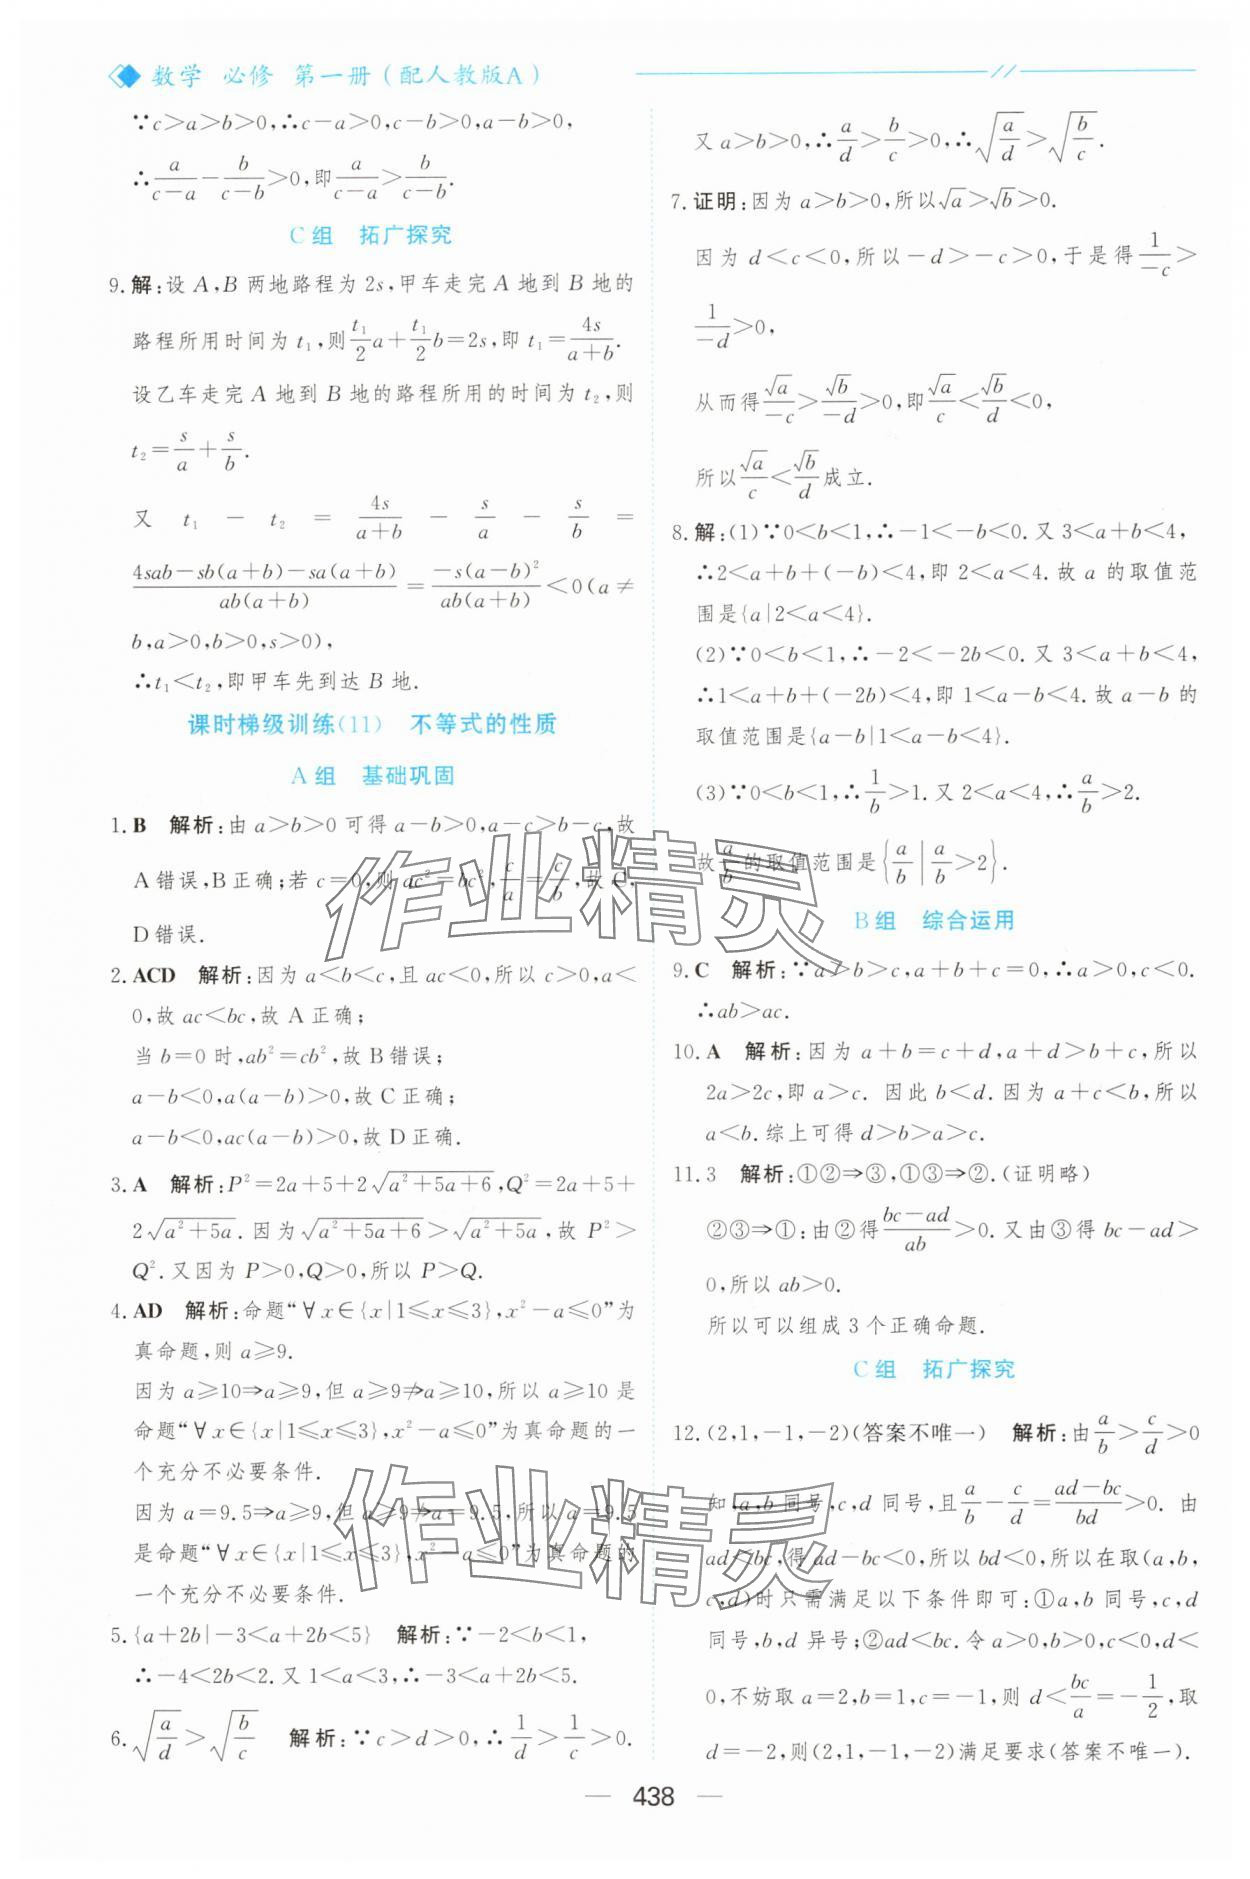 数学 必修 第一册(配人教版A)
∵c>a>b>0,∴c-a>0,c-b>0,a-b>0,
∴a/(c-a)-b/(c-b)>0,即a/(c-a)>b/(c-b).
C组 拓广探究
9.解:设A,B两地路程为2s,甲车走完A地到B地的
路程所用时间为t₁,则(t₁/2)a+(t₁/2)b=2s,即t₁=4s/(a+b).
设乙车走完A地到B地的路程所用的时间为t₂,则
t₂=s/a+s/b.
又 t₁ - t₂ = 4s/(a+b) - s/a - s/b =
(4sab-sb(a+b)-sa(a+b))/(ab(a+b))=(-s(a-b)²)/(ab(a+b))<0(a≠
b,a>0,b>0,s>0),
∴t₁<t₂,即甲车先到达B地.
课时梯级训练(11) 不等式的性质
A组 基础巩固
1.B 解析:由a>b>0可得a-b>0,a-c>b-c,故
A错误,B正确;若c=0,则ac²=bc²,c/a=c/b,故C,
D错误.
2.ACD 解析:因为a<b<c,且ac<0,所以c>0,a<
0,故ac<bc,故A正确;
当b=0时,ab²=cb²,故B错误;
a-b<0,a(a-b)>0,故C正确;
a-b<0,ac(a-b)>0,故D正确.
3.A 解析:P²=2a+5+2√(a²+5a+6),Q²=2a+5+
2√(a²+5a).因为√(a²+5a+6)>√(a²+5a),故P²>
Q².又因为P>0,Q>0,所以P>Q.
4.AD 解析:命题“∀x∈{x|1≤x≤3},x²-a≤0”为
真命题,则a≥9.
因为a≥10⇒a≥9,但a≥9⇏a≥10,所以a≥10是
命题“∀x∈{x|1≤x≤3},x²-a≤0”为真命题的一
个充分不必要条件.
因为a=9.5⇒a≥9,但a≥9⇏a=9.5,所以a=9.5
是命题“∀x∈{x|1≤x≤3},x²-a≤0”为真命题的
一个充分不必要条件.
5.{a+2b|-3<a+2b<5} 解析:∵-2<b<1,
∴-4<2b<2.又1<a<3,∴-3<a+2b<5.
6.√(a/d)>√(b/c) 解析:∵c>d>0,∴1/d>1/c>0.
又a>b>0,∴a/d>b/c>0,∴√(a/d)>√(b/c).
7.证明:因为a>b>0,所以√a>√b>0.
因为d<c<0,所以-d>-c>0,于是得1/(-c)>
1/(-d)>0,
从而得√a/(-c)>√b/(-d)>0,即√a/c<√b/d<0,
所以√a/c<√b/d成立.
8.解:(1)∵0<b<1,∴-1<-b<0.又3<a+b<4,
∴2<a+b+(-b)<4,即2<a<4.故a的取值范
围是{a|2<a<4}.
(2)∵0<b<1,∴-2<-2b<0.又3<a+b<4,
∴1<a+b+(-2b)<4,即1<a-b<4.故a-b的
取值范围是{a-b|1<a-b<4}.
(3)∵0<b<1,∴1/b>1.又2<a<4,∴a/b>2.
故a/b的取值范围是{a/b|a/b>2}.
B组 综合运用
9.C 解析:∵a>b>c,a+b+c=0,∴a>0,c<0.
∴ab>ac.
10.A 解析:因为a+b=c+d,a+d>b+c,所以
2a>2c,即a>c.因此b<d.因为a+c<b,所以
a<b.综上可得d>b>a>c.
11.3 解析:①②⇒③,①③⇒②.(证明略)
②③⇒①:由②得(bc-ad)/ab>0.又由③得bc-ad>
0,所以ab>0.
所以可以组成3个正确命题.
C组 拓广探究
12.(2,1,-1,-2)(答案不唯一) 解析:由a/b>c/d>0
知,a,b同号,c,d同号,且a/b-c/d=(ad-bc)/bd>0.由
ad<bc,得ad-bc<0,所以bd<0,所以在取(a,b,
c,d)时只需满足以下条件即可:①a,b同号,c,d
同号,b,d异号;②ad<bc.令a>0,b>0,c<0,d<
0,不妨取a=2,b=1,c=-1,则d<bc/a=-1/2,取
d=-2,则(2,1,-1,-2)满足要求(答案不唯一).
438
作业精灵
作业精灵